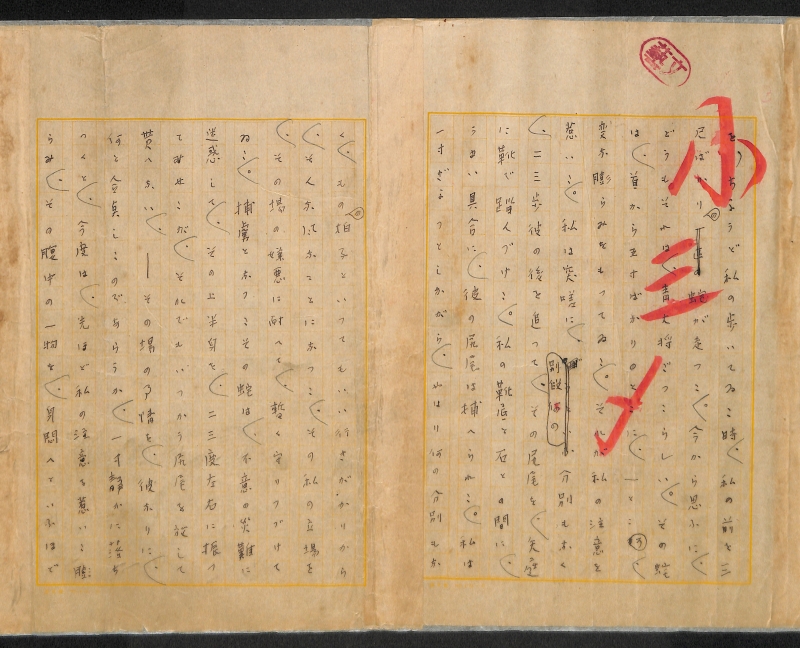 文藝
小三〆
を、ちようど私の歩いてゐた時、私の前を三
尺ばかりの蛇が走つた。今から思ふに、
どうもそれは、青大将だつたらしい。その蛇
は、首から五寸ばかりのところに、一ところ
変な膨らみをもつてゐた。それが私の注意を
惹いた。私は突嗟に、別段何の分別もなく
、二三歩彼の後を追つて、その尾尾を、矢庭
に靴で踏んづけた。私の靴底と石との間に
うまい具合に、彼の尻尾は捕へられた。私は
一寸ぎよつとしながら、やはり何の分別もな
く、もの拍子といつてもいい行きがかりから
、そんな風なことになつた、その私の立場を
、その場の嫌悪に耐へて、暫く守りつづけて
ゐた。捕虜となつたその蛇は、不意の災難に
迷惑して、その上半身を、二三度左右に振つ
てみせたが、それでもいつかう尻尾を放して
貰へない、――その場の事情を、彼なりに、
何と合点したのであらうか、一寸静かに落ち
つくと、今度は、先ほど私の注意を惹いた膨
らみ、その腹中の一物を、身悶へといふほど